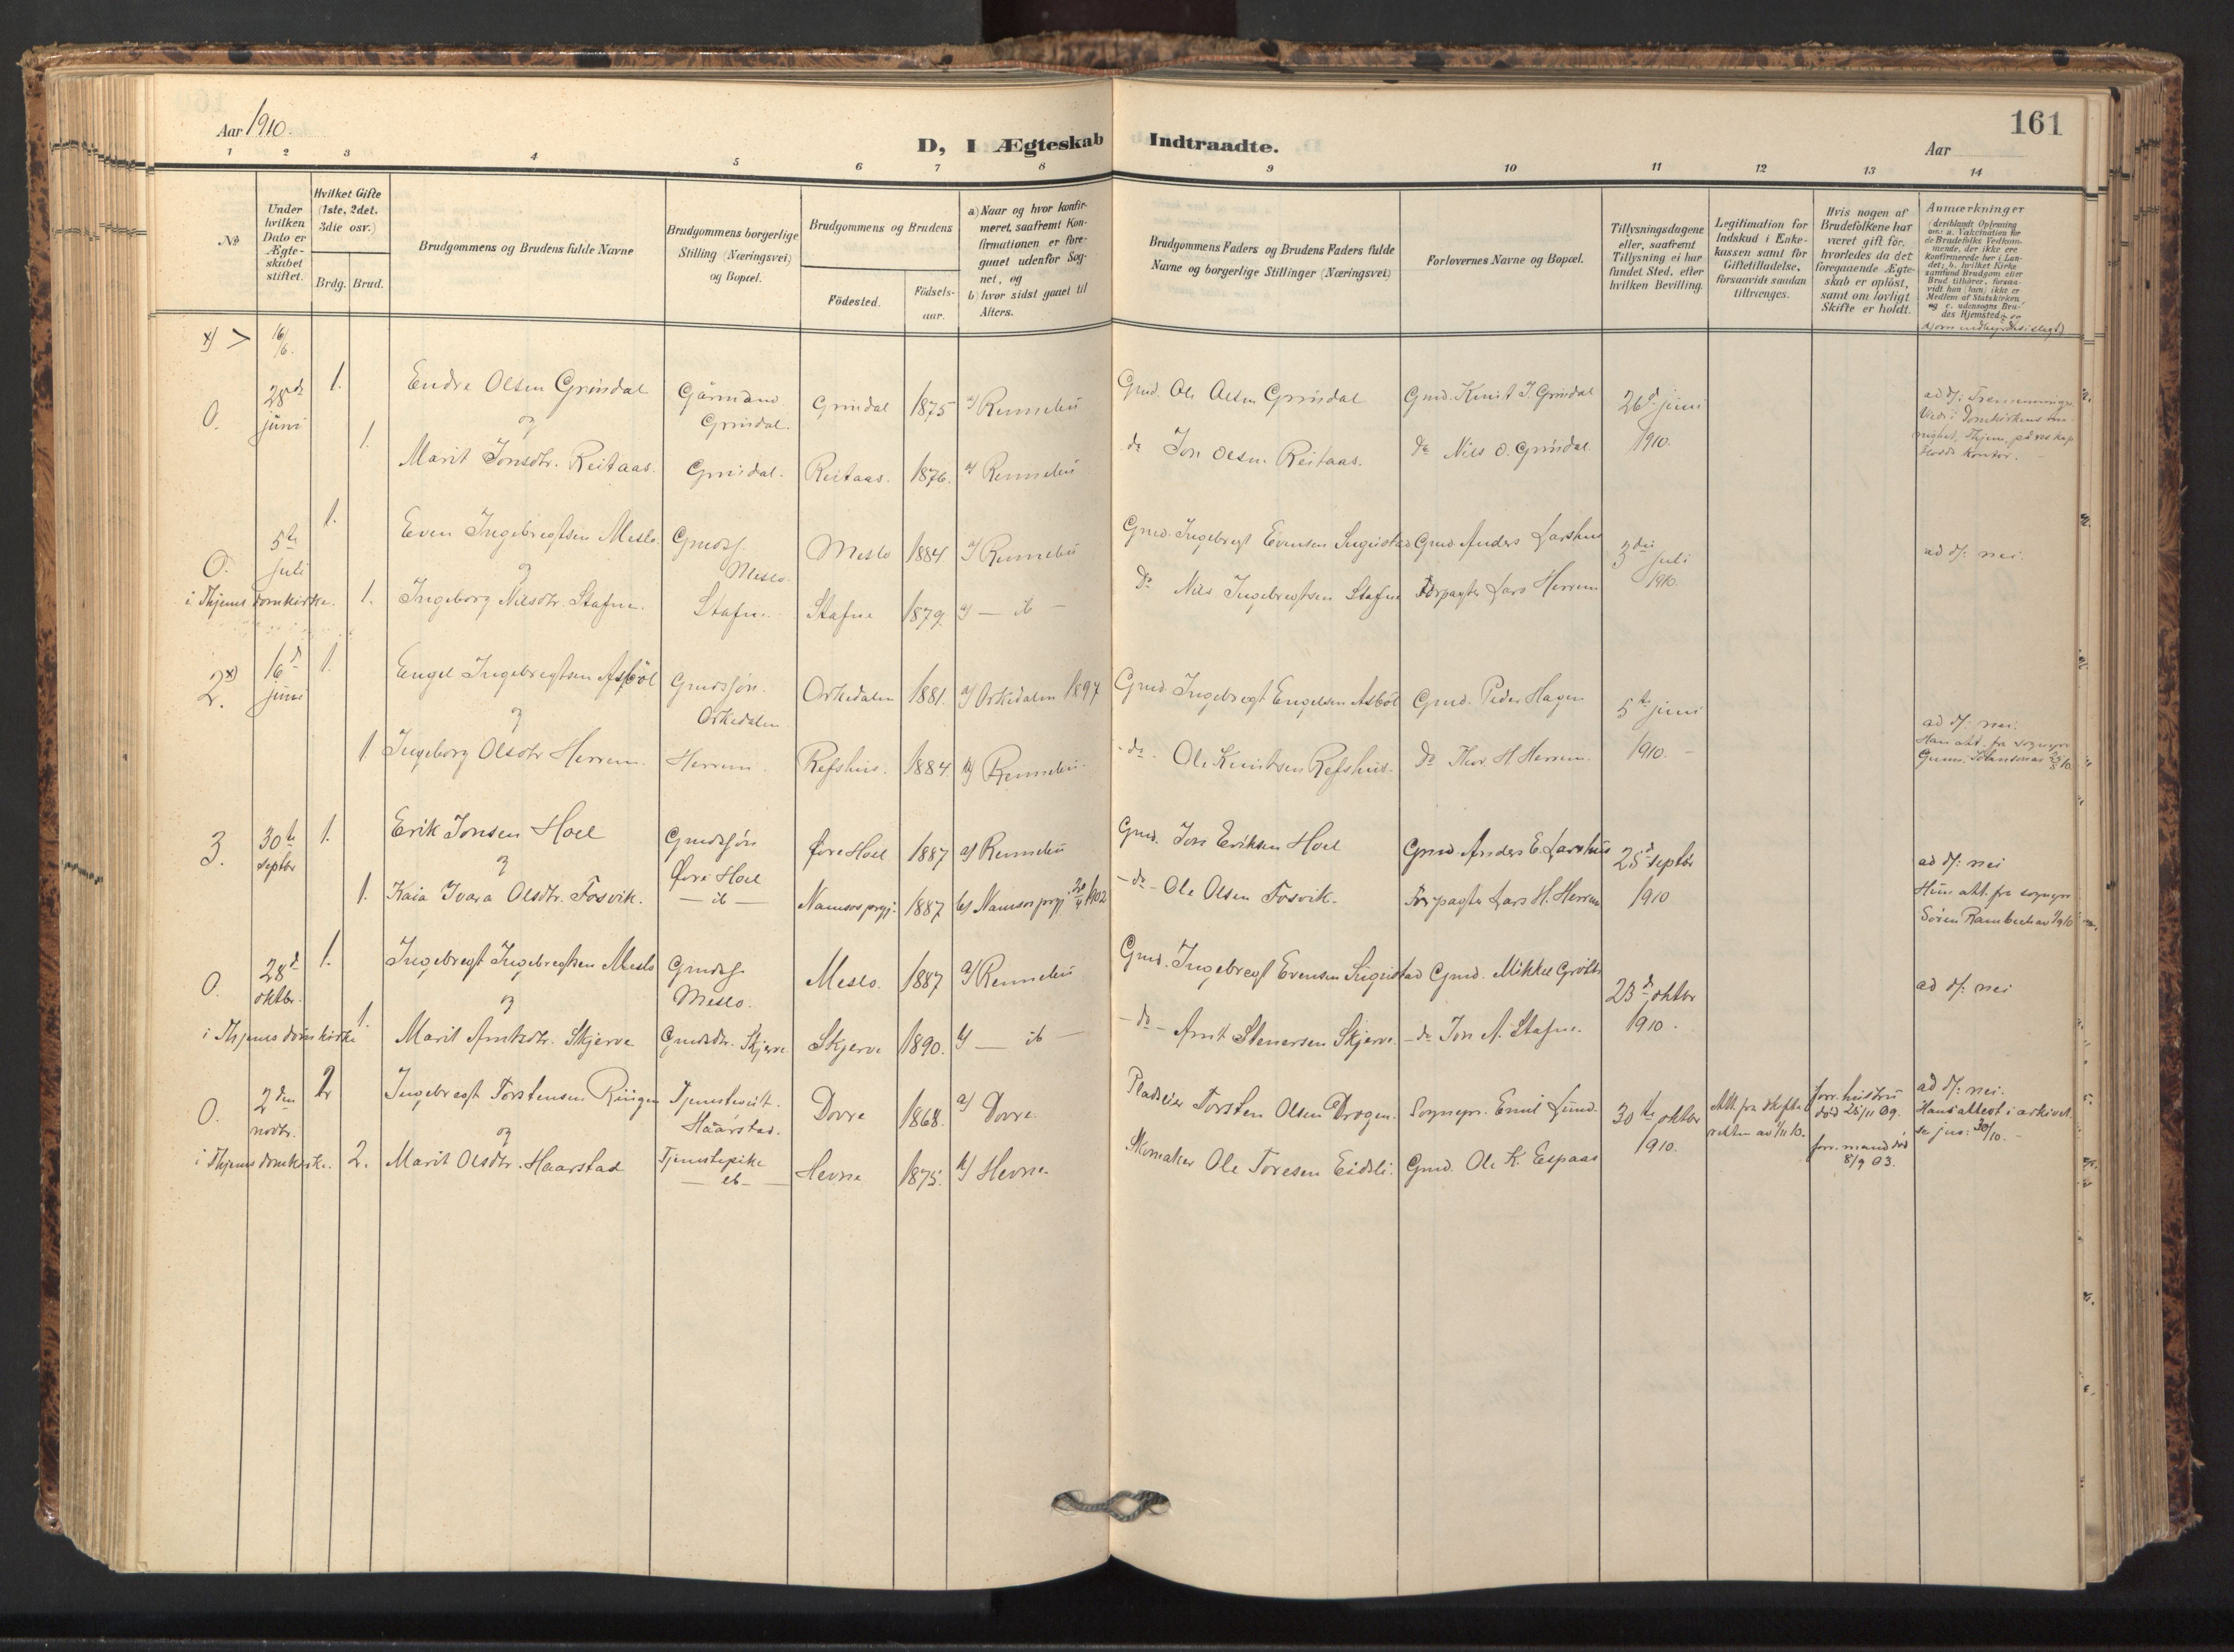 Aar 1910.
D, I Ægteskab Indtraadte.
161
Aar
1 2 3 4 5 6 7 8 9 10 11 12 13 14
No
Under
hvilken
Dato er
Ægte-
skabet
stiftet.
Hvilket Gifte
(1ste, 2det,
3die osv.)
Brdg. Brud.
Brudgommens og Brudens fulde Navne
Brudgommens borgerlige
Stilling (Næringsvei)
og Bopæl.
Brudgommens og Brudens
Födested.
Födsels-
aar.
a) Naar og hvor konfir-
meret, saafremt Kon-
firmationen er fore-
gaaet udenfor Sog-
net, og
b) hvor sidst gaaet til
Alters.
Brudgommens Faders og Brudens Faders fulde
Navne og borgerlige Stillinger (Næringsvei)
Forlovernes Navne og Bopæl.
Tillysningsdagene
eller, saafremt
Tillysning ei har
fundet Sted, efter
hvilken Bevilling.
Legitimation for
Indskud i Enke-
kassen samt for
Giftetilladelse,
forsaavidt saadan
tiltrænges.
Hvis nogen af
Brudefolkene har
været gift før,
hvorledes da det
foregaaende Ægte-
skab er oplöst,
samt om lovligt
Skifte er holdt.
Anmærkninger
deriblandt Oplysning
om: a. Vakcination for
de Brudefolks Vedkom-
mende, der ikke ere
konfirmerede her i Lan-
det; b. hvilket Kirke-
samfund Brudgom eller
Brud tilhører, forsaa-
vidt han (hun) ikke er
Medlem af Statskirken,
og c. udensogns Bru-
des Hjemsted, og
x) > 16/6.
O. 28de juni 1. Endre Olsen Grindal Gårmand Grindal. Grindal 1875 a) Rennebu Gmd. Ole Olsen Grindal Gmd. Knut J. Grindal 26d juni 1910.
og
1. Marit Jonsdtr. Reitaas. Grindal. Reitaas. 1876. a) Rennebu do Jon Olsen Reitaas. do Nils O. Grindal
O. 5te juli 1. Even Ingebregtsen Meslo. Gmdss. Meslo. Meslo 1884 a) Rennebu Gmd. Ingebregt Evensen Gmd Anders Larshus 3die juli 1910. ad d/: nei.
og
i Thjems Domkirke. 1. Ingeborg Nilsdtr. Stafne. Stafne. Stafne 1879. a) — ib — do Nils Ingebregtsen Stafne Forpagter Lars Herrem
2. x) 16d juni 1. Engel Ingebregtsen Asböl Gmdssjön. Orkedalen Orkedalen 1881. a) Orkedalen 1897 Gmd. Ingebregt Engelsen Asböl Gmd. Peder Hagen 5te juni 1910. ad d/: nei.
og
1 Ingeborg Olsdtr Herrem. Herrem. Refshus. 1884. b) Rennebu. - do - Ole Knutsen Refshus. do Thor. H. Herrem. Han att. fra sognepr
3. 30te septbr 1. Erik Jonsen Hoel Gmdssjön Øvre Hoel Øvre Hoel 1887 a) Rennebu Gmd. Jon Eriksen Hoel Gmd Anders E. Larshus 25d septbr 1910 ad d/: nei
og
1. Kaia Ivara Olsdtr. Fosvik. — ib — Namsos prgj: 1887 b) Namsos prgj 1902 - do - Ole Olsen Fosvik. Forpagter Lars H. Herrem Hun att. fra sognepr
O. 28d oktbr. 1. Ingebregt Ingebregtsen Meslo Gmdss. Meslo. Meslo. 1887 a) Rennebu Gmd. Ingebregt Evensen Gmd. Mikkel 23d oktbr 1910. ad d/: nei
og
i Thjems domkirke 1. Marit Arntsdtr. Skjerve Gmdsdtr. Skjerve Skjerve 1890. b) — ib — - do - Arnt Stenersen Skjerve. - do Jon A. Stafne.
O. 2den novbr. 2 Ingebregt Torstensen Ringen Tjenestevist. Haarstad. Dovre 1868. a) Dovre. Pladseier Torsten Olsen Drogen. Sognepr. Emil Lund. 30te oktbr 1910. Att. fra skifte- retten av 1/11 10. forr. hustru död 25/11 09. ad d/: nei. Hans attest i arkivet.
og
i Thjems domkirke. 2. Marit Olsdtr. Haarstad Tjenestepike — ib — Hevne 1875. b) Hevne. Skomaker Ole Toresen Eidsli. Gmd. Ole K. Espaas forr. mand död 8/9 03.